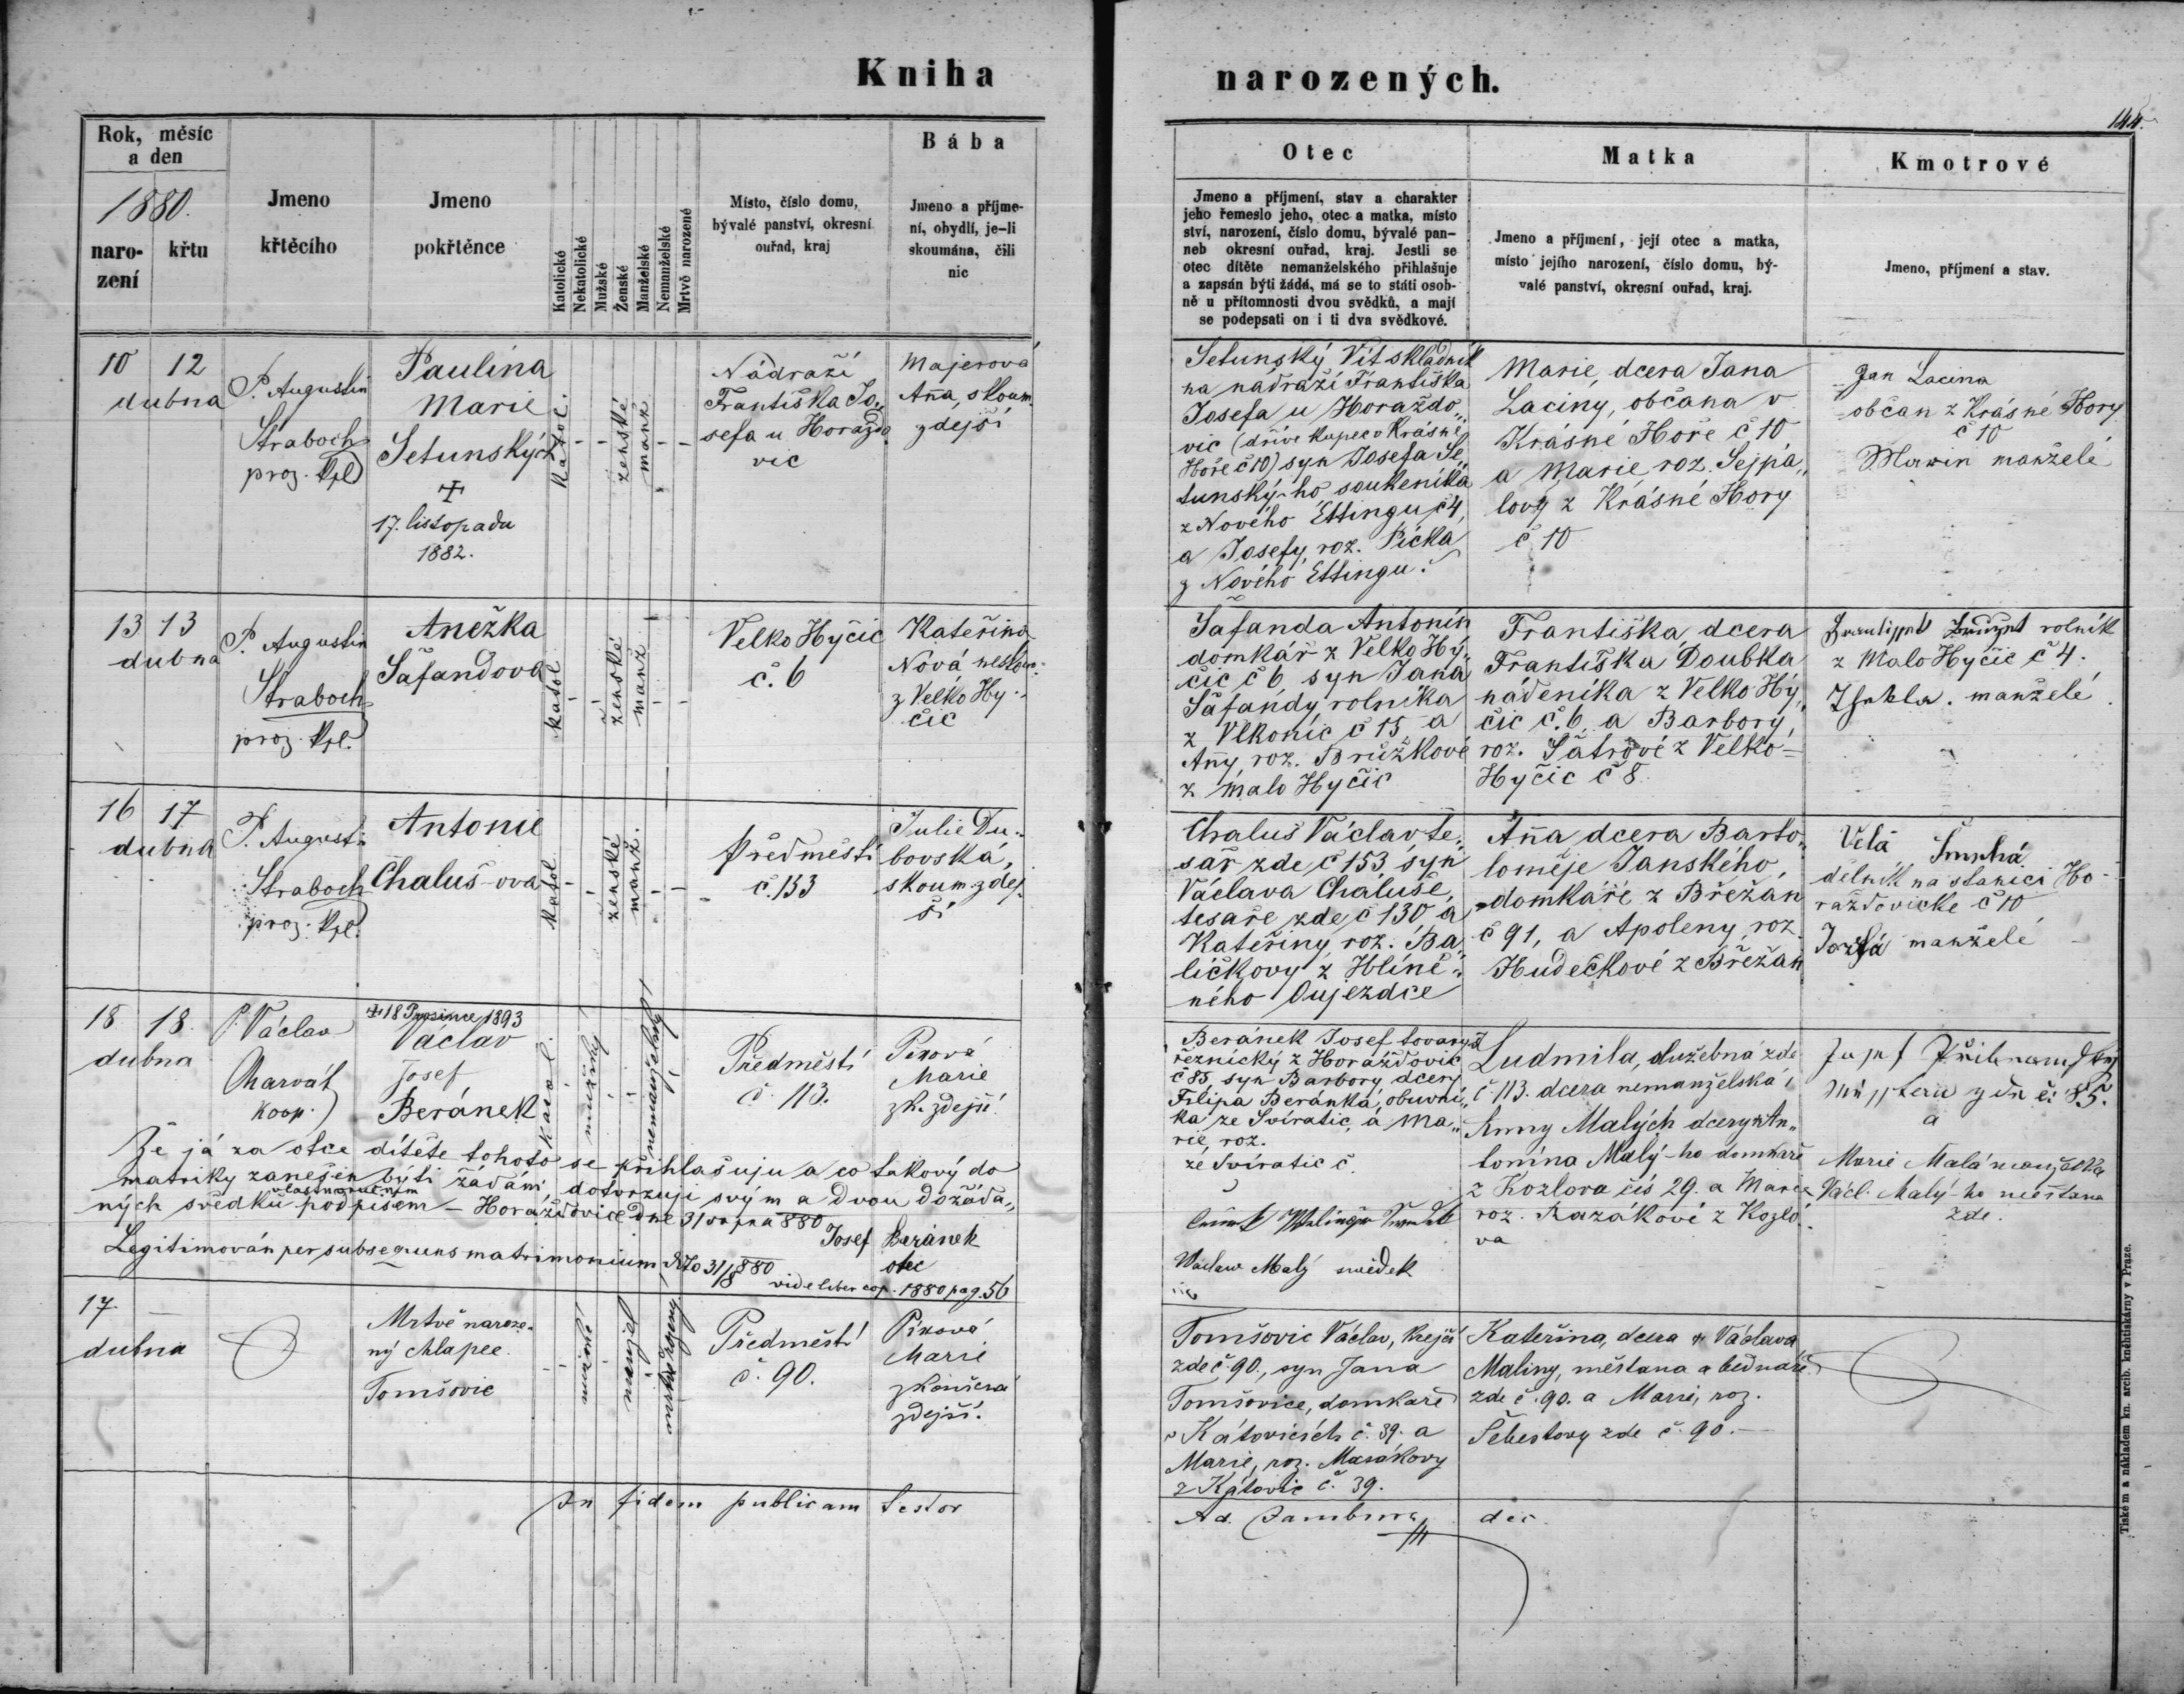 Kniha narozených.
144.
Rok, měsíc
a den
1880.
naro-
zení
křtu
Jmeno
křtěcího
Jmeno
pokřtěnce
Katolické
Nekatolické
Mužské
Ženské
Manželské
Nemanželské
Mrtvě narozené
Místo, číslo domu,
bývalé panství, okresní
ouřad, kraj
Bába
Jmeno a příjme-
ní, obydlí, je-li
skoumána, čili
nic
Otec
Jmeno a příjmení, stav a charakter
jeho řemeslo jeho, otec a matka, místo
ství, narození, číslo domu, bývalé pan-
neb okresní ouřad, kraj. Jestli se
otec dítěte nemanželského přihlašuje
a zapsán býti žádá, má se to státi osob-
ně u přítomnosti dvou svědků, a mají
se podepsati on i ti dva svědkové.
Matka
Jmeno a příjmení, její otec a matka,
místo jejího narození, číslo domu, bý-
valé panství, okresní ouřad, kraj.
Kmotrové
Jmeno, příjmení a stav.
10 12
dubna
P. Augustin
Straboch
proz. Kpl
Paulina
Marie
Setunských
17. listopadu
1882.
Katol.
ženské
manž
Nádraží
Františka Jo„
sefa u Horažďo
vic
Majerová
Aña, skoum.
zdejší
Setunský Vít skladník
na nádraží Františka
Josefa u Horaždo„
vic (dříve kupec v Krásné
Hoře č 10) syn Josefa Se„
tunský-ho soukeníka
z Nového Ettingu č 4,
a Josefy, roz. Picka
z Nového Ettingu.
Marie, dcera Jana
Laciny, občana v
Krásné Hoře č 10
a Marie, roz. Sejpa„
lovy z Krásné Hory
č 10
Jan Lacina
občan z Krásné Hory
č 10
manželé
13 13
dubna
P. Augustin
Straboch
proz. Kpl.
Anežka
Šafandova
katol
ženské
manž
Velko Hyčic
č. 6
Kateřina
Nová
z Velko Hy-
čic
Šafanda Antonín
domkář z Velko Hy„
čic č 6 syn Jana
Šafandy rolníka
z Vlkonic č 15 a
Añy roz. Brůžkové
z malo Hyčic
Františka dcera
Františka Doubka
nádeníka z Velko Hy„
čic č. 6 a Barbory,
roz. Šatrové z Velko-
Hyčic č 8.
rolník
z Malo Hyčic č 4.
manželé
16 17
dubna
P. August.
Straboch
proz. Kpl.
Antonie
Chaluš-ova
katol
ženské
manž.
předměstí
č. 153
Julie Du-
bovská,
skoum. zdej-
ší
Chaluš Václav, te-
sař zde č 153 syn
Václava Chaluše,
tesaře zde č 130 a
Kateřiny roz. Ba„
ličkovy z Hlině-
ného Oujezdce
Aña dcera Barto„
loměje Janského,
domkáře z Břežan
č 91, a Apoleny, roz.
Hudečkové z Břežan
dělník na stanici Ho-
raždovické č 10
manželé
18 18.
dubna
P. Václav
Charvát
koop.
18 Prosince 1893
Václav
Josef
Beránek
katol.
mužský
nemanželský
Předměstí
č. 113.
Pixová
Marie
zk. zdejší.
Beránek Josef tovaryš
řeznický z Horažďovic
č 85, syn Barbory, dcery
Filipa Beránka, obuvní„
ka ze Svíratic, a Ma„
rie, roz.
ze Svíratic č.
Ludmila, služebná zde
č 113. dcera nemanželská
Anny Malých dcery An„
tonína Malý-ho domkaře
z Kozlova čís 29. a Marie
roz. Kazákové z Kozlo-
va
č. 85.
a
Marie Malá manželka
Václ. Malý-ho měšťana
zde.
Že já za otce dítěte tohoto se přihlašuju a co takový do
matriky zanešen býti žádám dotvrzuji svým a dvou dožáda„
vlastnoručním
ných svědků podpisem – Horažďovice dne 31 srpna 880
Josef Beránek
otec
Legitimován per subsequens matrimonium ddto 31/8 880
vide liber cop. 1880 pag. 56
Václav Malý svědek
17. –
dubna
Mrtvě naroze-
ný chlapec.
Tomšovic
mužské
manžel
mrtvě rozený
Předměstí
č. 90.
Pixová
Marie
zkoušená
zdejší.
Tomšovic Václav, krejčí
zde č. 90., syn Jana
Tomšovice, domkaře
v Kátovicích č. 39. a
Marie, roz. Masákovy
z Kátovic č. 39.
Kateřina, dcera Václava
Maliny, měšťana a bednáře
zde č. 90. a Marie, roz.
Šebestovy zde č. 90.–
In fidem publicam testor
Ad. Jambura,
děk.
Tiskem a nákladem kn. arcib. kněhtiskárny v Praze.